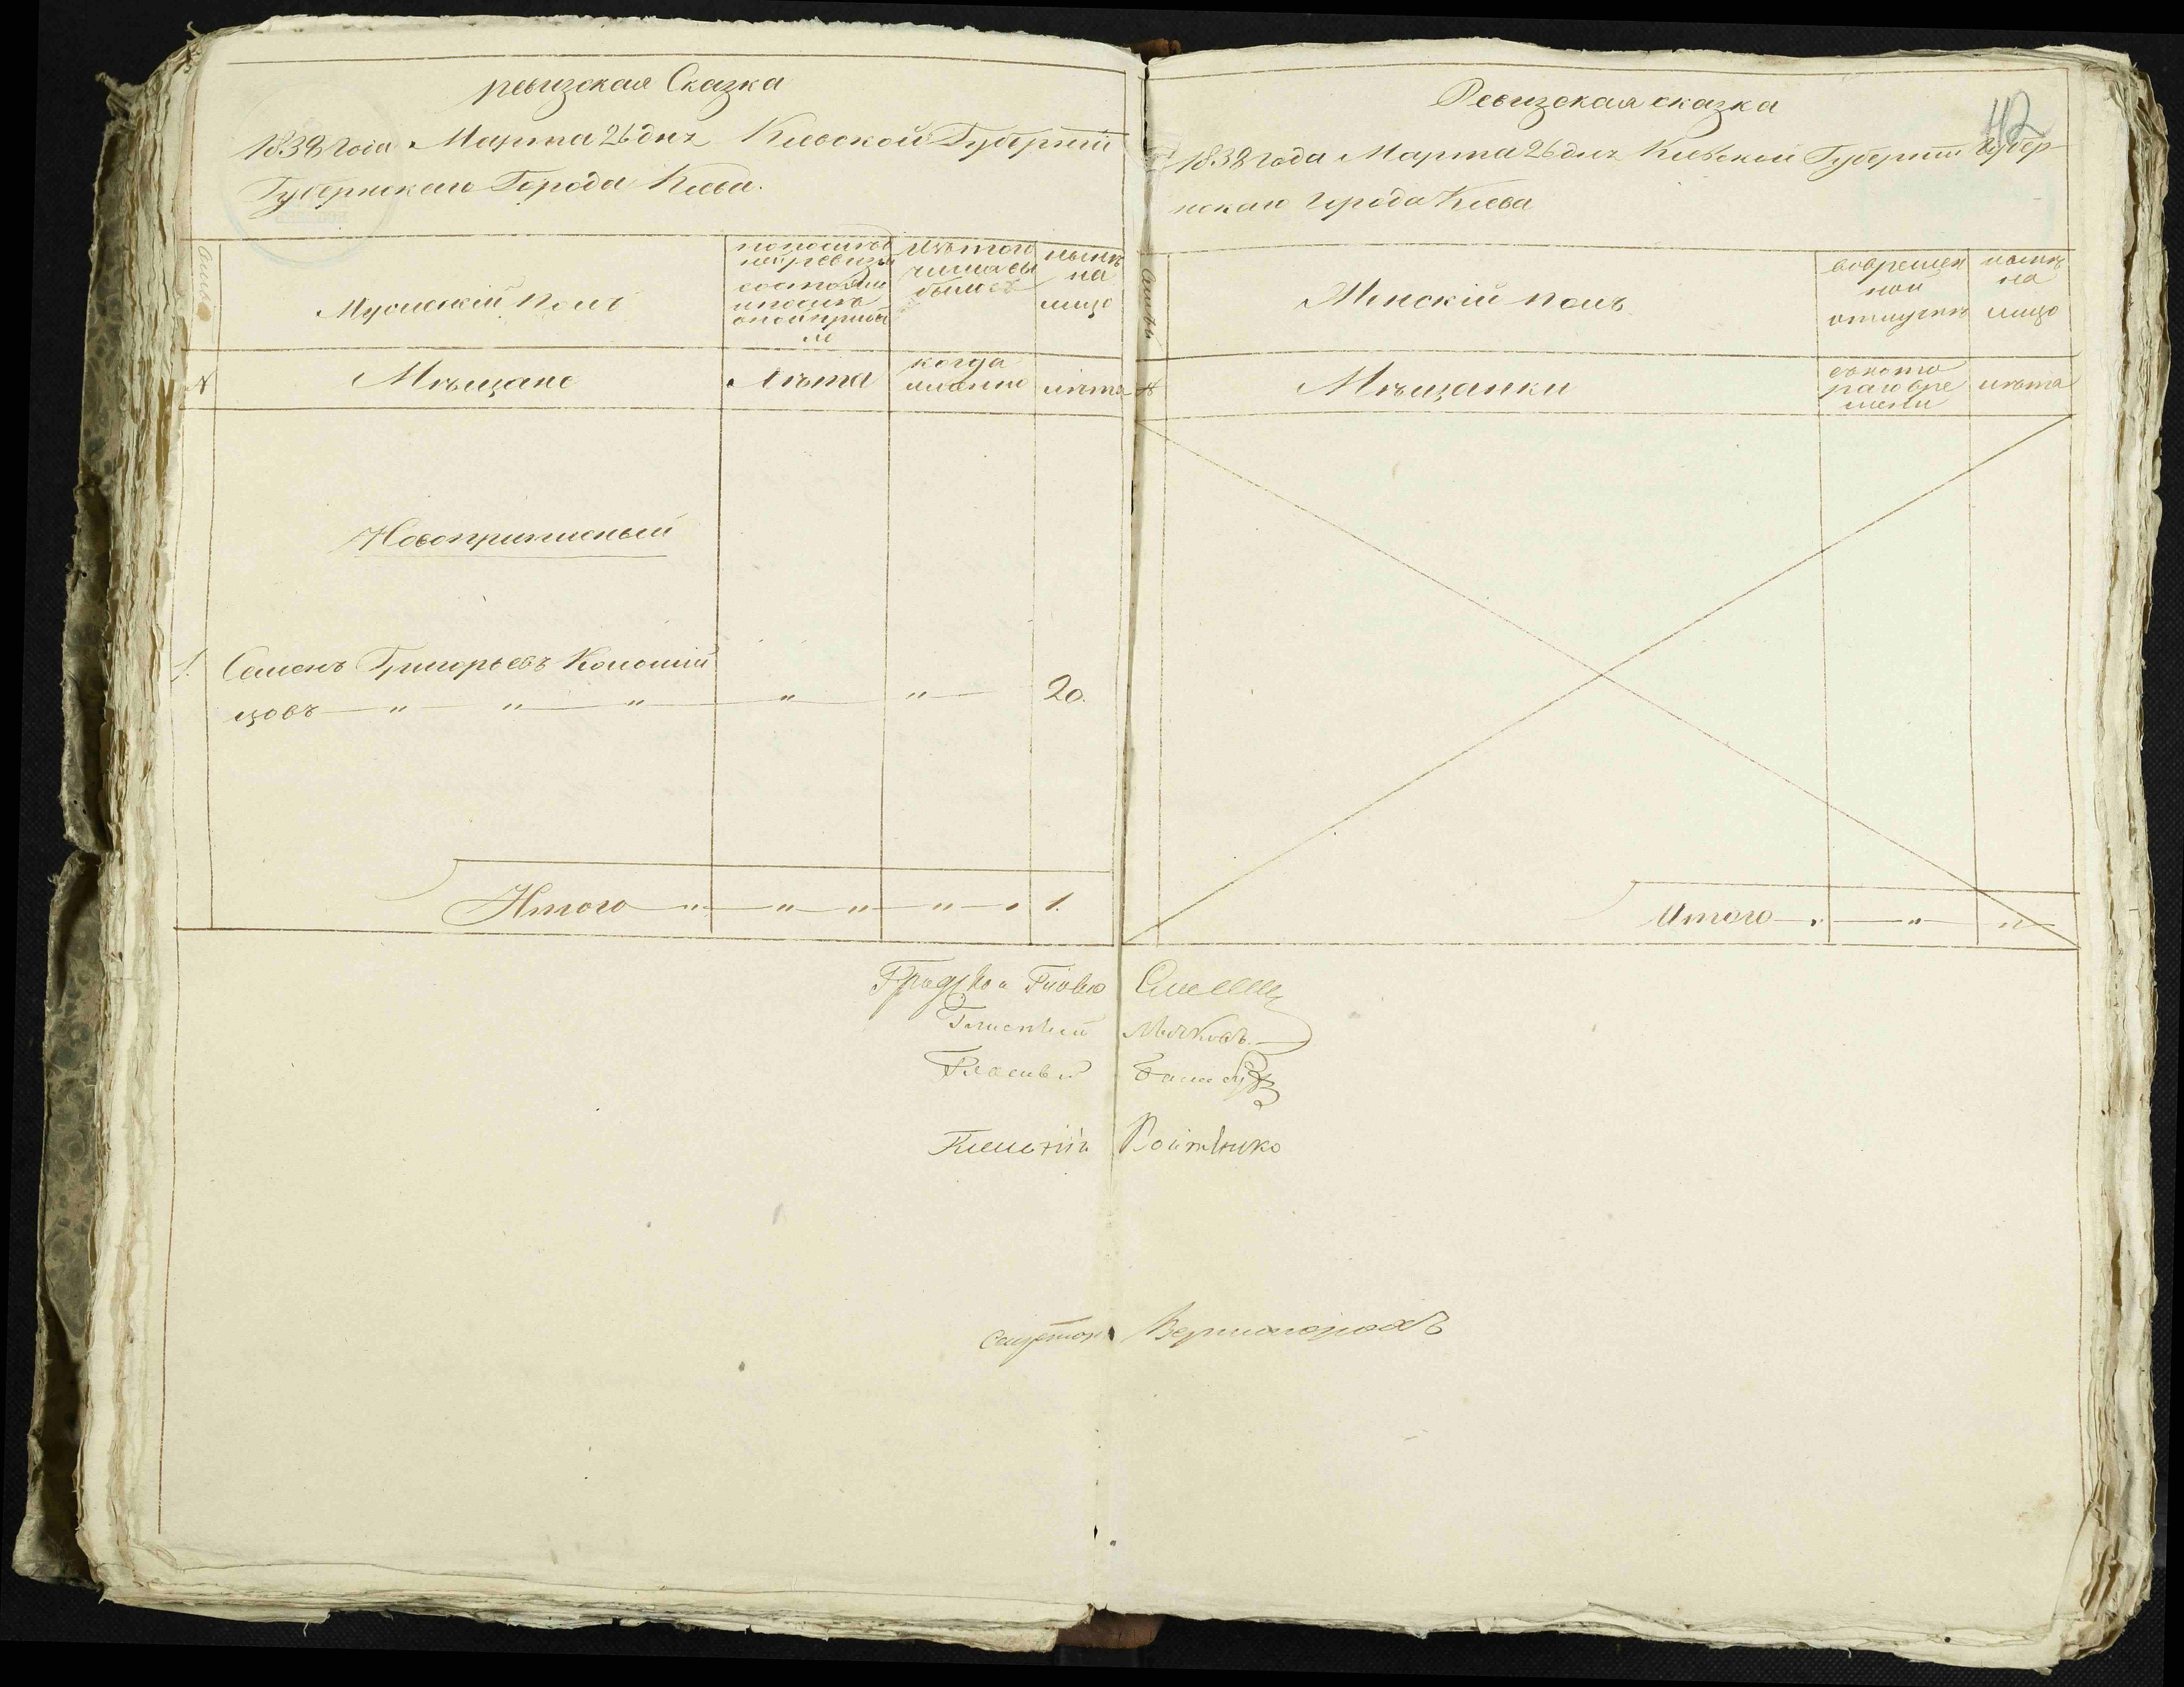 ревизская Сказка
1838 года Марта 26 дня Киевской Губернии
Губернскаго Города Киева.
Мужескій полъ
по последней ревизіи состояло и после оной прибыло
Изъ того числа выбыло
ныне на лицо
№
Мѣщане
Лѣта
когда именно
лѣта
Новоприписный
1. Семенъ Григорьевъ Коломій
цовъ — " — " — " — " — " — 20.
Итого — " — " — " — " — 1.
Ревизская сказка
42
1838 года Марта 26 дня Киевской Губерніи Губер-
нскаго Города Киева
Семьи
Женскій полъ
во времен
ной
отлучкѣ
ныне
на
лицо
№
Мѣщанки
съ кото
раго вре
мени
лѣта
Итого — " — " — "
Градской Глава
Гласный
Гласный
Гласный Войтенко